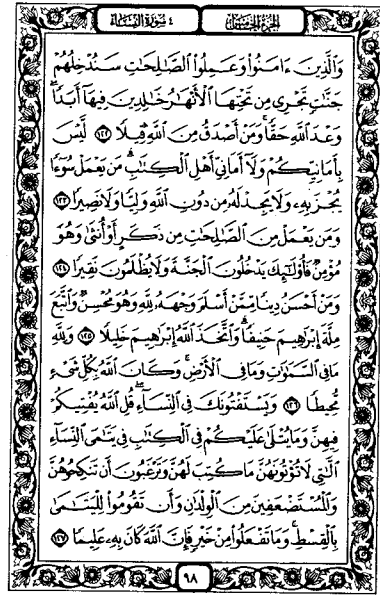 الجزء الخامس ٤ سورة النساء
وَالَّذِينَ ءَامَنُوا۟ وَعَمِلُوا۟ الصَّٰلِحَٰتِ سَنُدْخِلُهُمْ
جَنَّٰتٍ تَجْرِى مِن تَحْتِهَا الْأَنْهَٰرُ خَٰلِدِينَ فِيهَا أَبَدًا ۖ
وَعْدَ اللَّهِ حَقًّا ۚ وَمَنْ أَصْدَقُ مِنَ اللَّهِ قِيلًا ١٢٢ لَّيْسَ
بِأَمَانِيِّكُمْ وَلَآ أَمَانِىِّ أَهْلِ الْكِتَٰبِ ۗ مَن يَعْمَلْ سُوٓءًا
يُجْزَ بِهِۦ وَلَا يَجِدْ لَهُۥ مِن دُونِ اللَّهِ وَلِيًّا وَلَا نَصِيرًا ١٢٣
وَمَن يَعْمَلْ مِنَ الصَّٰلِحَٰتِ مِن ذَكَرٍ أَوْ أُنثَىٰ وَهُوَ
مُؤْمِنٌ فَأُو۟لَٰٓئِكَ يَدْخُلُونَ الْجَنَّةَ وَلَا يُظْلَمُونَ نَقِيرًا ١٢٤
وَمَنْ أَحْسَنُ دِينًا مِّمَّنْ أَسْلَمَ وَجْهَهُۥ لِلَّهِ وَهُوَ مُحْسِنٌ وَاتَّبَعَ
مِلَّةَ إِبْرَٰهِيمَ حَنِيفًا ۗ وَاتَّخَذَ اللَّهُ إِبْرَٰهِيمَ خَلِيلًا ١٢٥ وَلِلَّهِ
مَا فِى السَّمَٰوَٰتِ وَمَا فِى الْأَرْضِ ۚ وَكَانَ اللَّهُ بِكُلِّ شَىْءٍ
مُّحِيطًا ١٢٦ وَيَسْتَفْتُونَكَ فِى النِّسَآءِ ۖ قُلِ اللَّهُ يُفْتِيكُمْ
فِيهِنَّ وَمَا يُتْلَىٰ عَلَيْكُمْ فِى الْكِتَٰبِ فِى يَتَٰمَى النِّسَآءِ
الَّٰتِى لَا تُؤْتُونَهُنَّ مَا كُتِبَ لَهُنَّ وَتَرْغَبُونَ أَن تَنكِحُوهُنَّ
وَالْمُسْتَضْعَفِينَ مِنَ الْوِلْدَٰنِ وَأَن تَقُومُوا۟ لِلْيَتَٰمَىٰ
بِالْقِسْطِ ۚ وَمَا تَفْعَلُوا۟ مِنْ خَيْرٍ فَإِنَّ اللَّهَ كَانَ بِهِۦ عَلِيمًا ١٢٧
٩٨